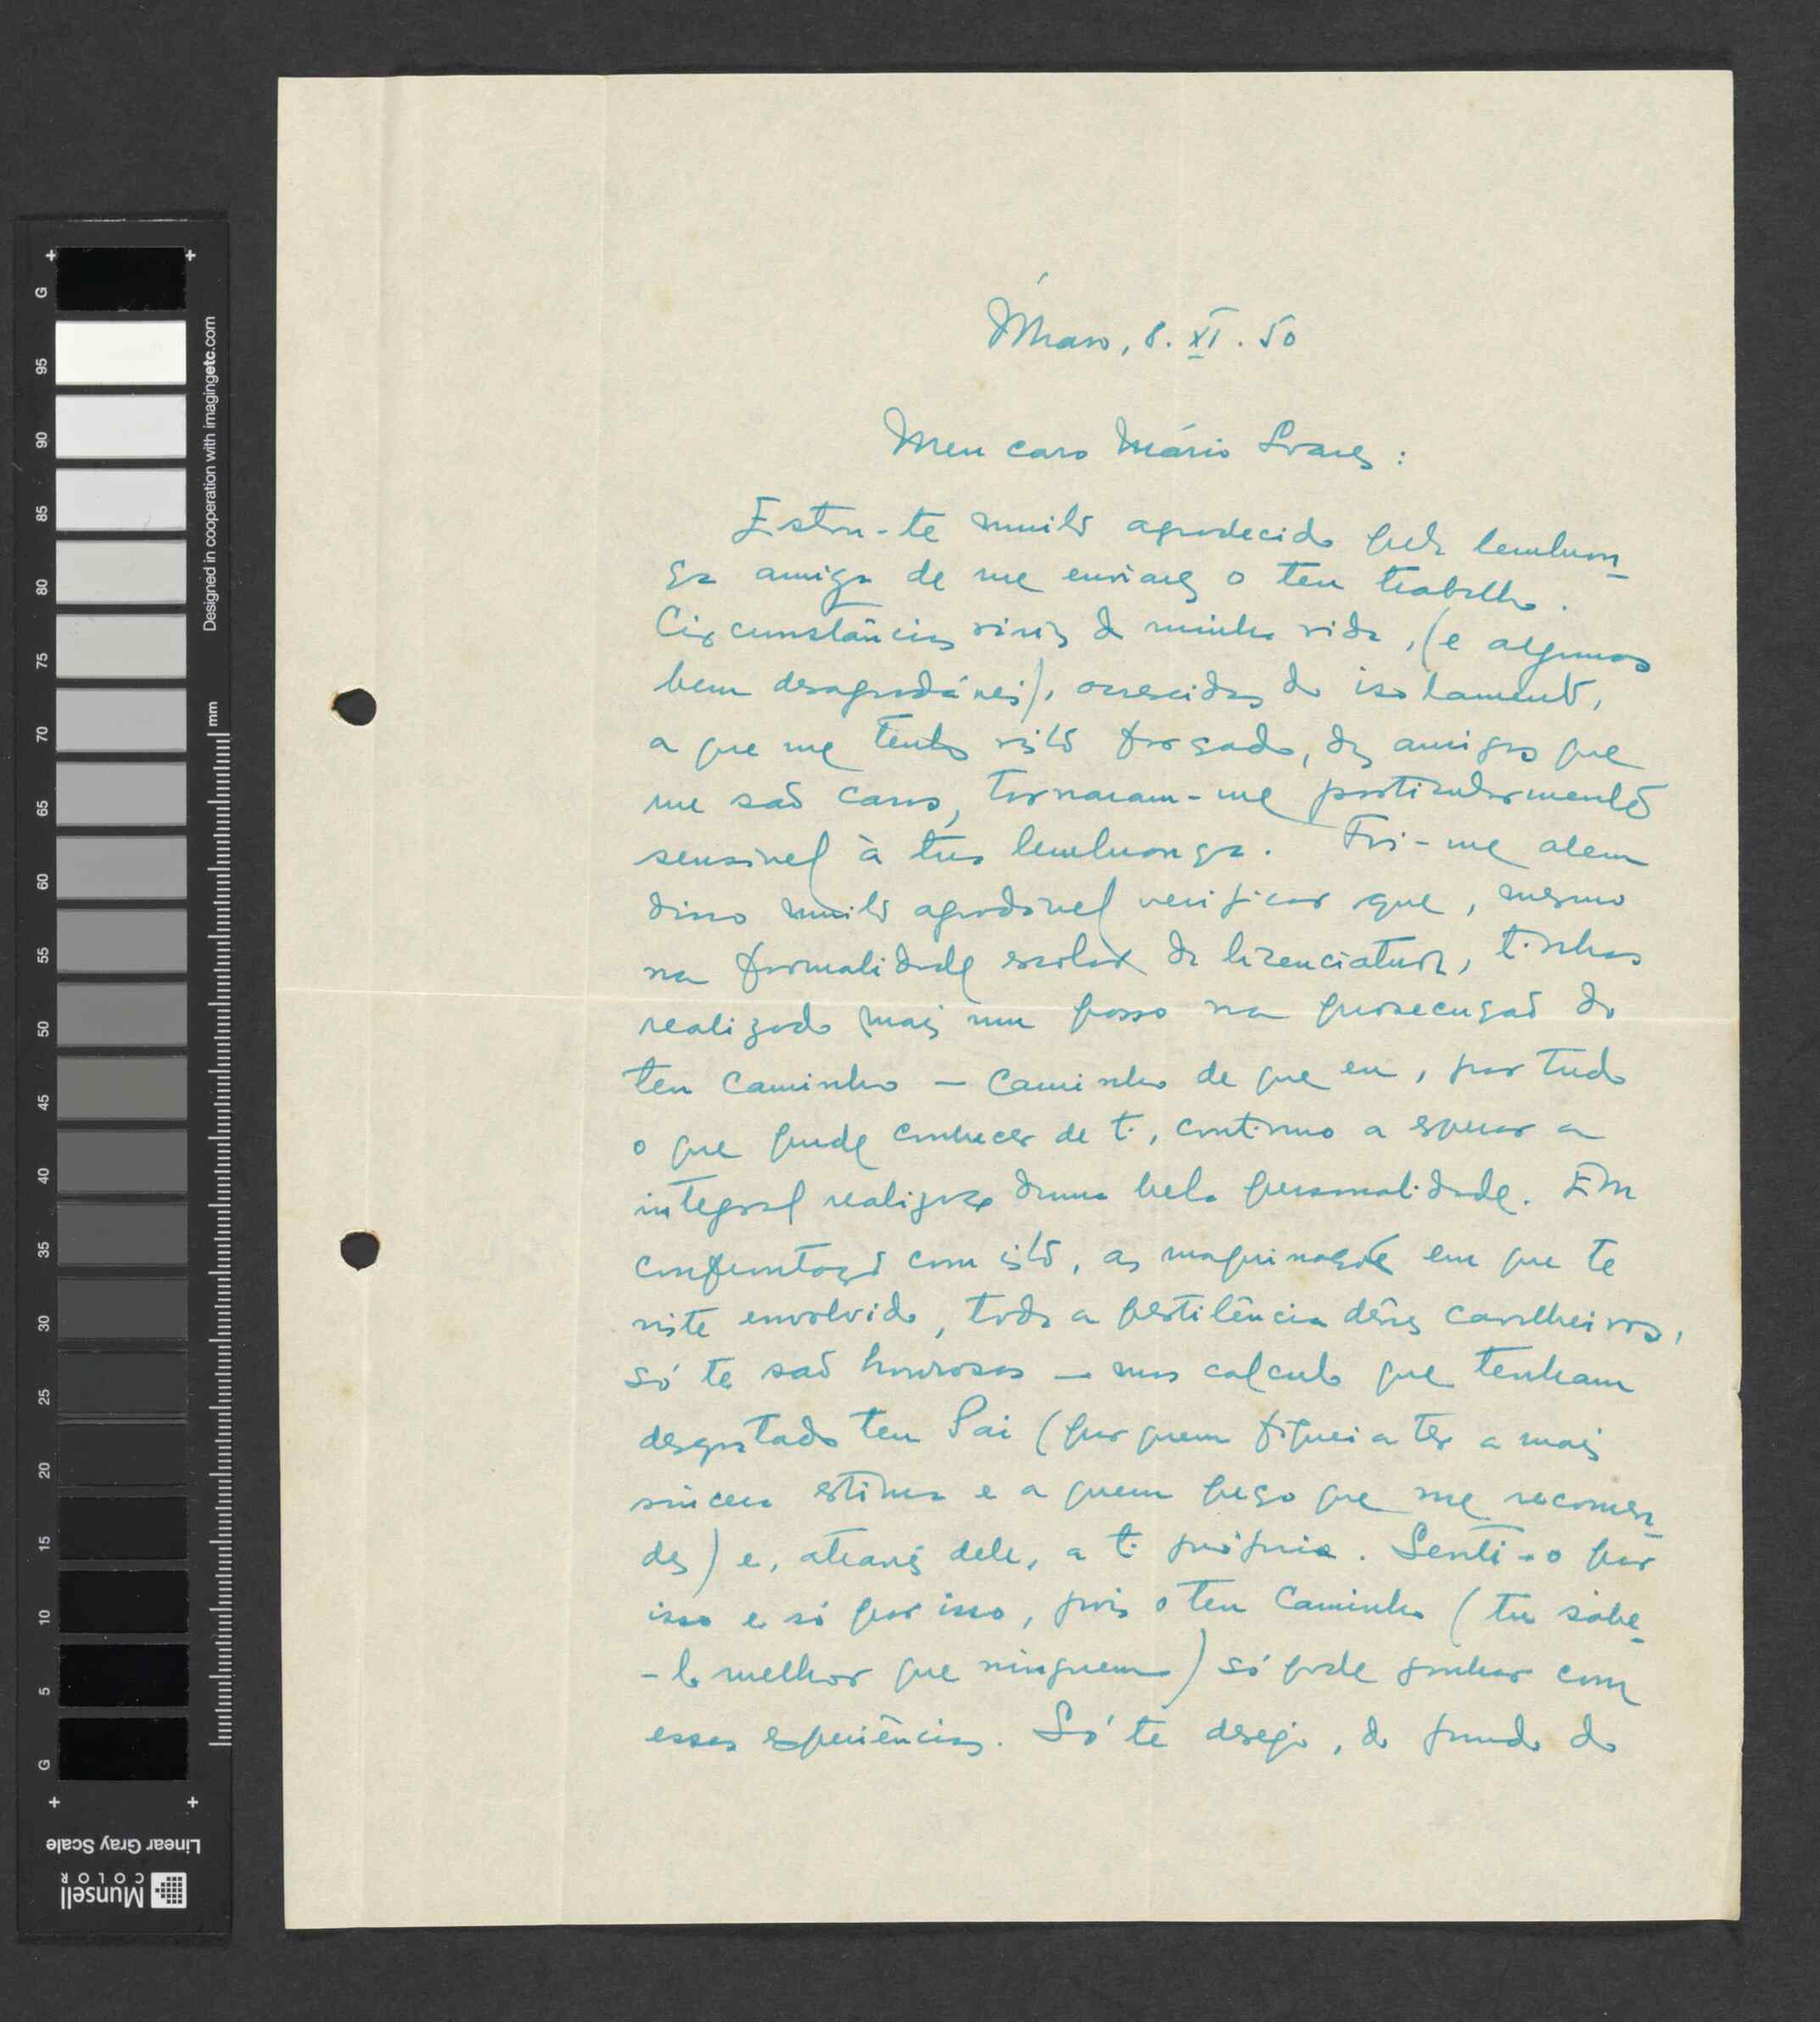 Ílhavo, 8.XI.50
Meu caro Mário Soares:
Estou-te muito agradecido pela lembran-
ça amiga de me enviares o teu trabalho.
Circunstâncias várias da minha vida, (e algumas
bem desagradáveis), acrescidas do isolamento,
a que me tenho visto forçado, dos amigos que
me são caros, tornaram-me particularmente
sensível à tua lembrança. Foi-me alem
disso muito agradável verificar que, mesmo
na formalidade escolar da licenciatura, tinhas
realizado mais um passo na prossecução do
teu caminho — caminho de que eu, por tudo
o que pude conhecer de ti, continuo a esperar a
integral realização duma bela personalidade. Em
confrontação com isto, as maquinações em que te
viste envolvido, toda a pestilência dêsses cavalheiros,
só te são honrosas — mas calculo que tenham
desgostado teu Pai (por quem fiquei a ter a mais
sincera estima e a quem peço que me recomen-
des) e, através dele, a ti próprio. Senti-o por
isso e só por isso, pois o teu caminho (tu sabe-
-lo melhor que ninguem) só pode ganhar com
essas experiências. Só te desejo, do fundo do
G
95
90
85
80
75
70
65
60
55
50
45
40
35
30
25
20
15
10
5
G
mm
Designed in cooperation with imagingetc.com
Linear Gray Scale
Munsell
COLOR